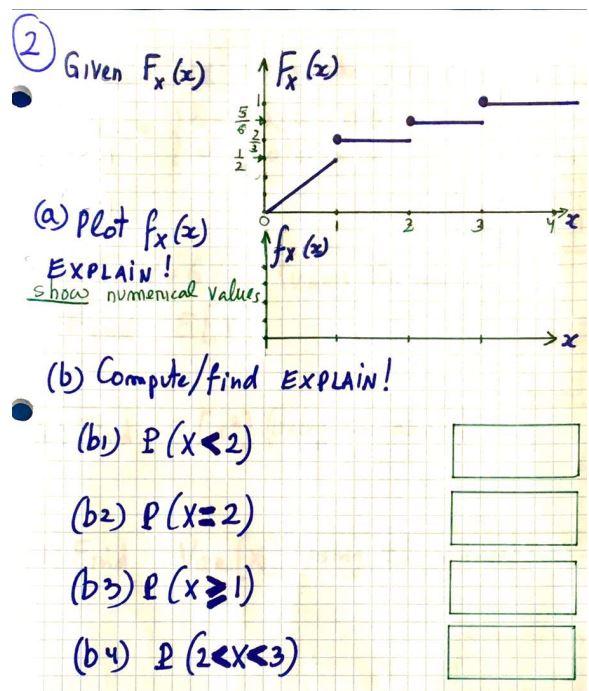 2
Given Fₓ(x)
Fₓ(x)
1
5/6
2/3
1/2
0 1 2 3 4 x
(a) Plot fₓ(x)
EXPLAIN!
show numerical values
fₓ(x)
x
(b) Compute/find EXPLAIN!
(b1) P(X<2)
(b2) P(X=2)
(b3) P(X≥1)
(b4) P(2<X<3)